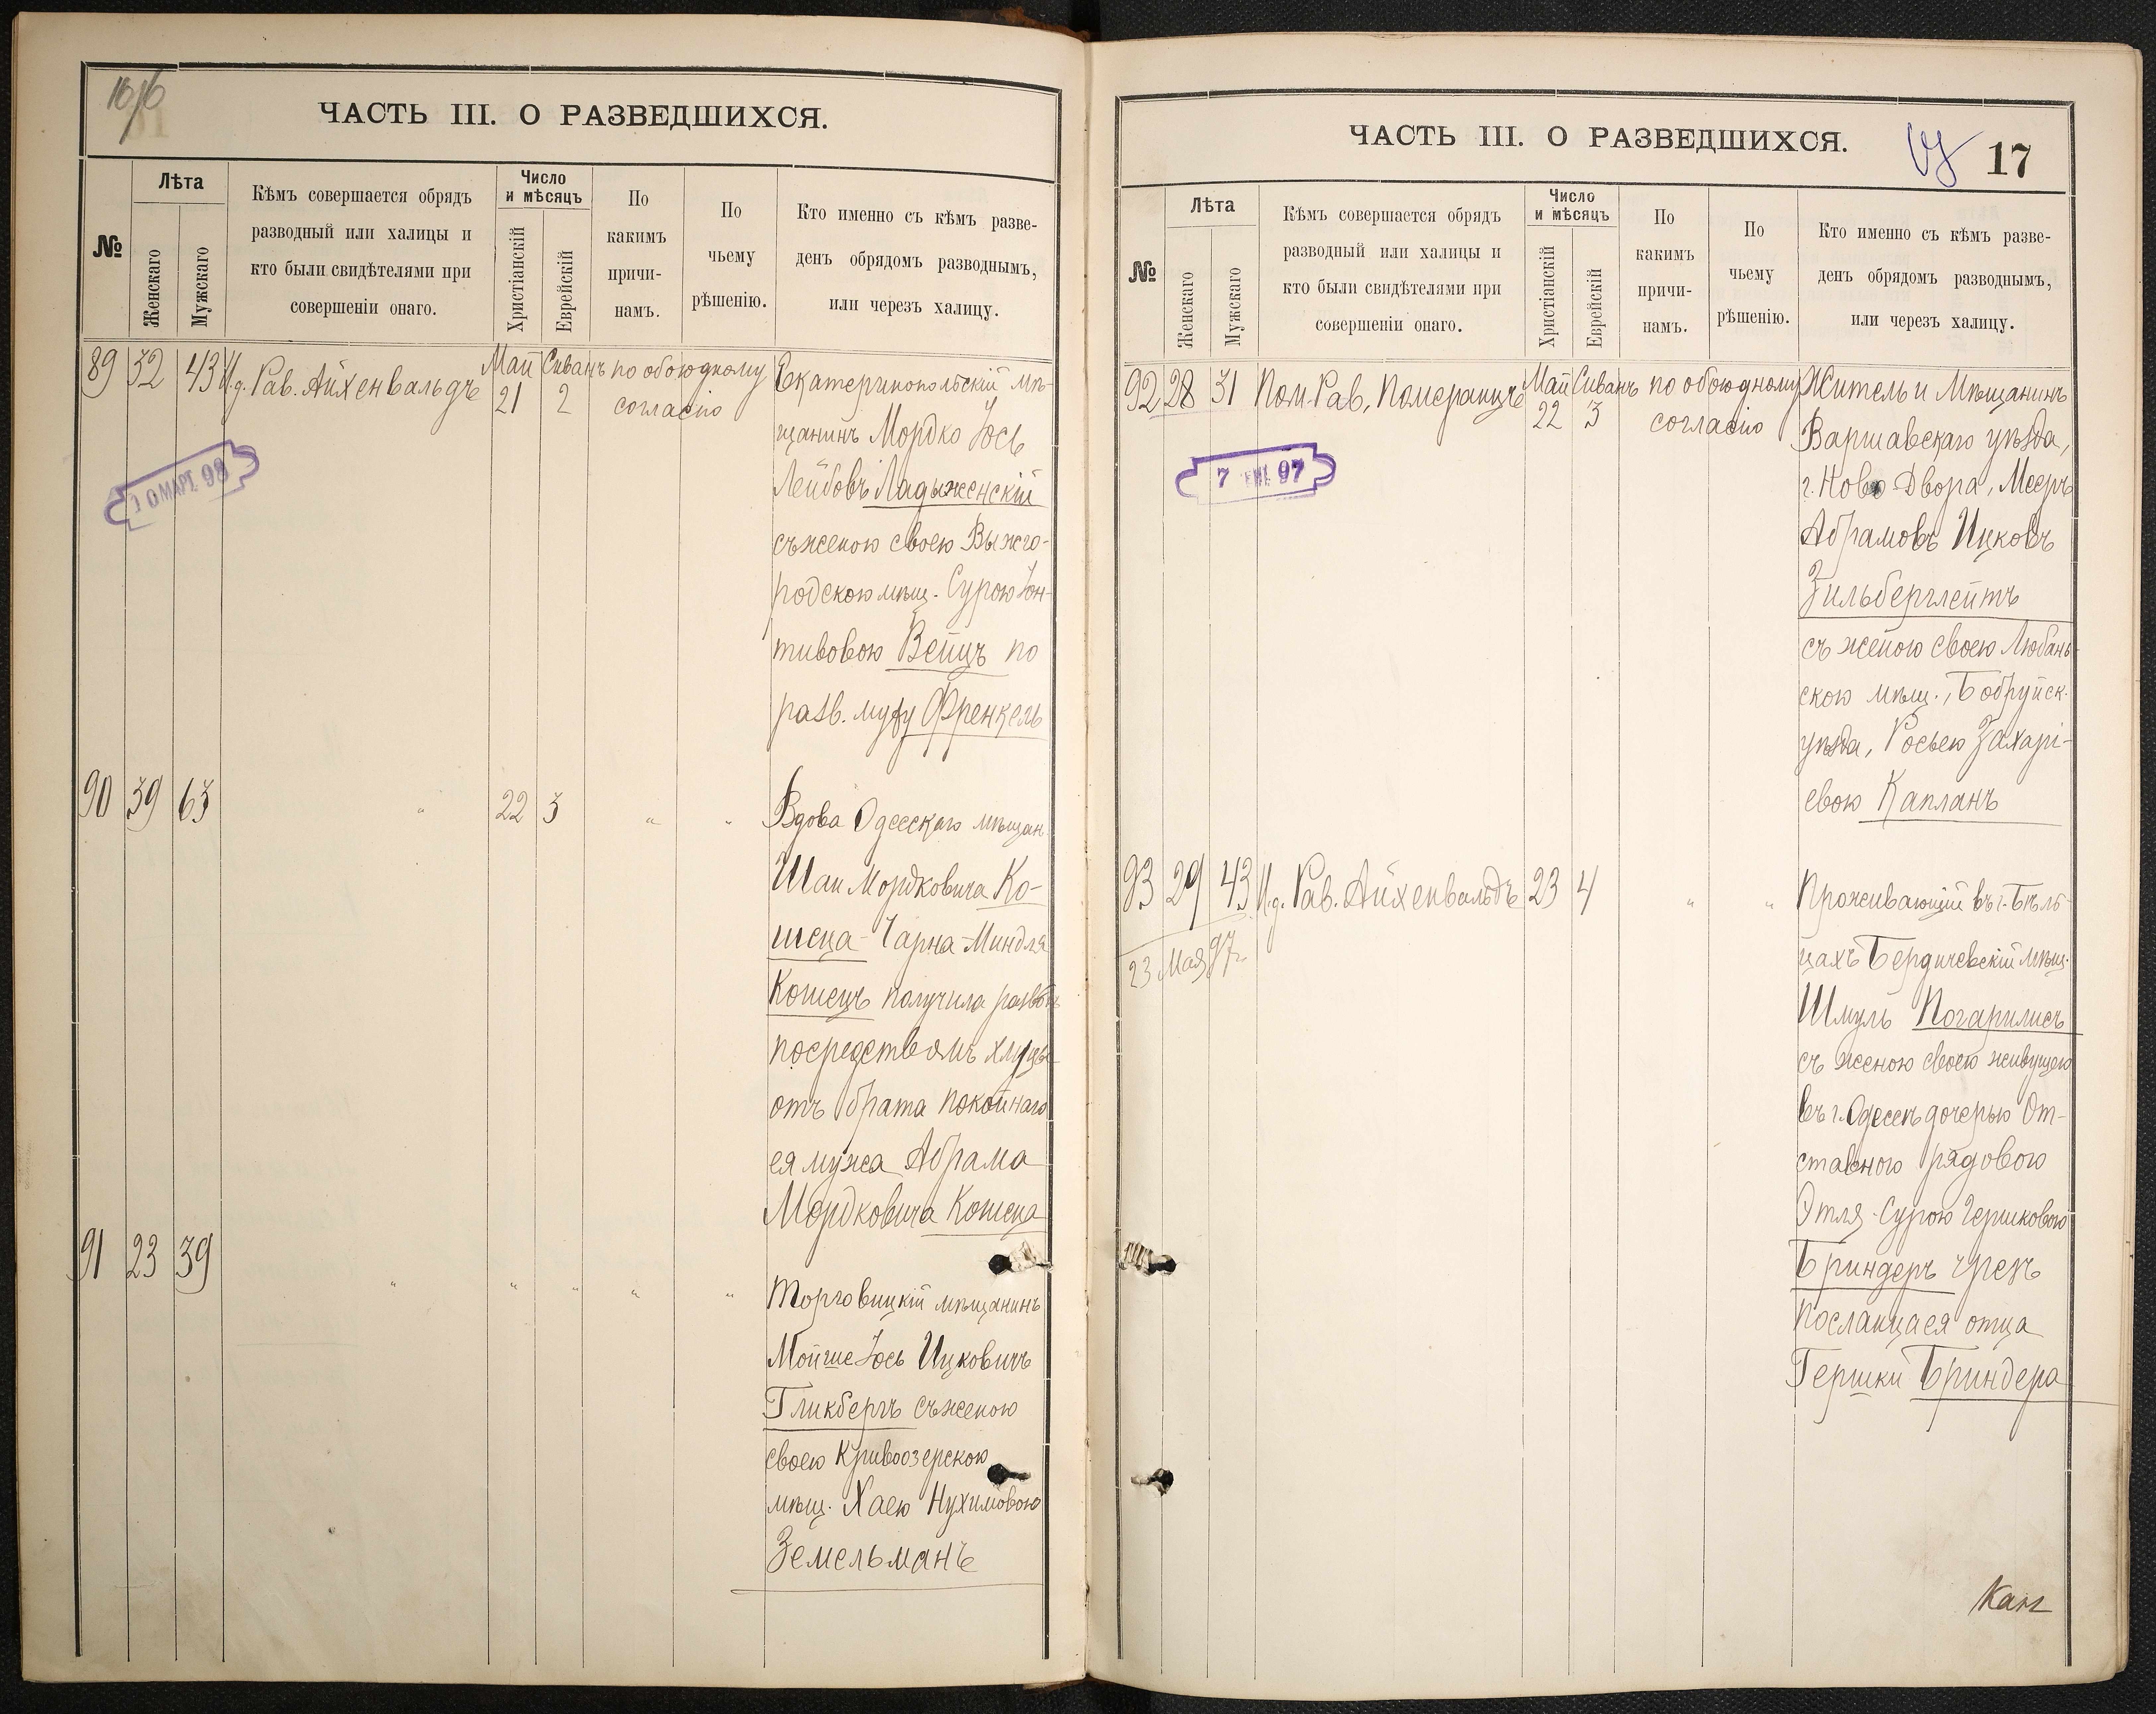 16/16
ЧАСТЬ III. О РАЗВЕДШИХСЯ.
№
Лѣта
Женскаго
Мужскаго
Кѣмъ совершается обрядъ
разводный или халицы и
кто были свидѣтелями при
совершеніи онаго.
Число
и мѣсяцъ
Христіанскій
Еврейскій
По
какимъ
причи-
намъ.
По
чьему
рѣшенію.
Кто именно съ кѣмъ разве-
денъ обрядомъ разводнымъ,
или черезъ халицу.
89 32 43 И.д. Рав. Айхенвальдъ Май 21 Сиванъ 2 по обоюдному
согласію
Екатеринопольскій мѣ-
щанинъ Мордко Іось
Лейбовъ Ладыженскій
съ женою своею Вышго-
родскою мѣщ. Сурою Іон-
тивовою Вейцъ по
разв. мужу Френкель
10 МАРТ. 98
90 39 63 " 22 3 " "
Вдова Одесскаго мѣщан.
Шаи Мордковича Ко-
шеца - Чарна-Миндля
Кошецъ получила разводъ
посредствомъ
отъ брата покойнаго
ея мужа Абрама
Мордковича Кошеца
91 23 39 " " " " "
Торговицкій мѣщанинъ
Мойше Іось Ицковичъ
Гликбергъ съ женою
своею Кривоозерскою
мѣщ. Хаею Нухимовою
Земельманъ
ЧАСТЬ III. О РАЗВЕДШИХСЯ.
17
№
Лѣта
Женскаго
Мужскаго
Кѣмъ совершается обрядъ
разводный или халицы и
кто были свидѣтелями при
совершеніи онаго.
Число
и мѣсяцъ
Христіанскій
Еврейскій
По
какимъ
причи-
намъ.
По
чьему
рѣшенію.
Кто именно съ кѣмъ разве-
денъ обрядомъ разводнымъ,
или черезъ халицу.
92 28 31 Пом. Рав. Померанцъ Май 22 Сиванъ 3 по обоюдному
согласію
Житель и Мѣщанинъ
Варшавскаго уѣзда,
г. Ново-Двора, Мееръ
Абрамовъ Ицковъ
Зильберглейтъ
съ женою своею Любань-
скою мѣщ., Бобруйск.
уѣзда, Росьею Захарі-
евою Капланъ
7 97
93 29 43 И.д. Рав. Айхенвальдъ 23 4 " "
23 Мая 97 г.
Проживающій въ г. Бѣль-
цахъ Бердичевскій мѣщ.
Шмуль Погарилисъ
съ женою своею живущею
въ г. Одессѣ дочерью От-
ставного рядового
Этля-Сурою Гершковою
Бриндеръ чрезъ
посланца ея отца
Гершки Бриндера